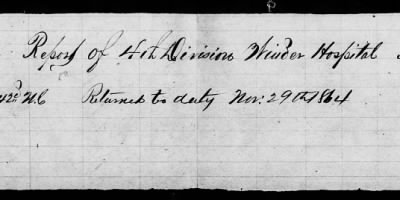 Report of 4th Division Winder Hospital
42d N.C Returned to duty Nov: 29th 1864